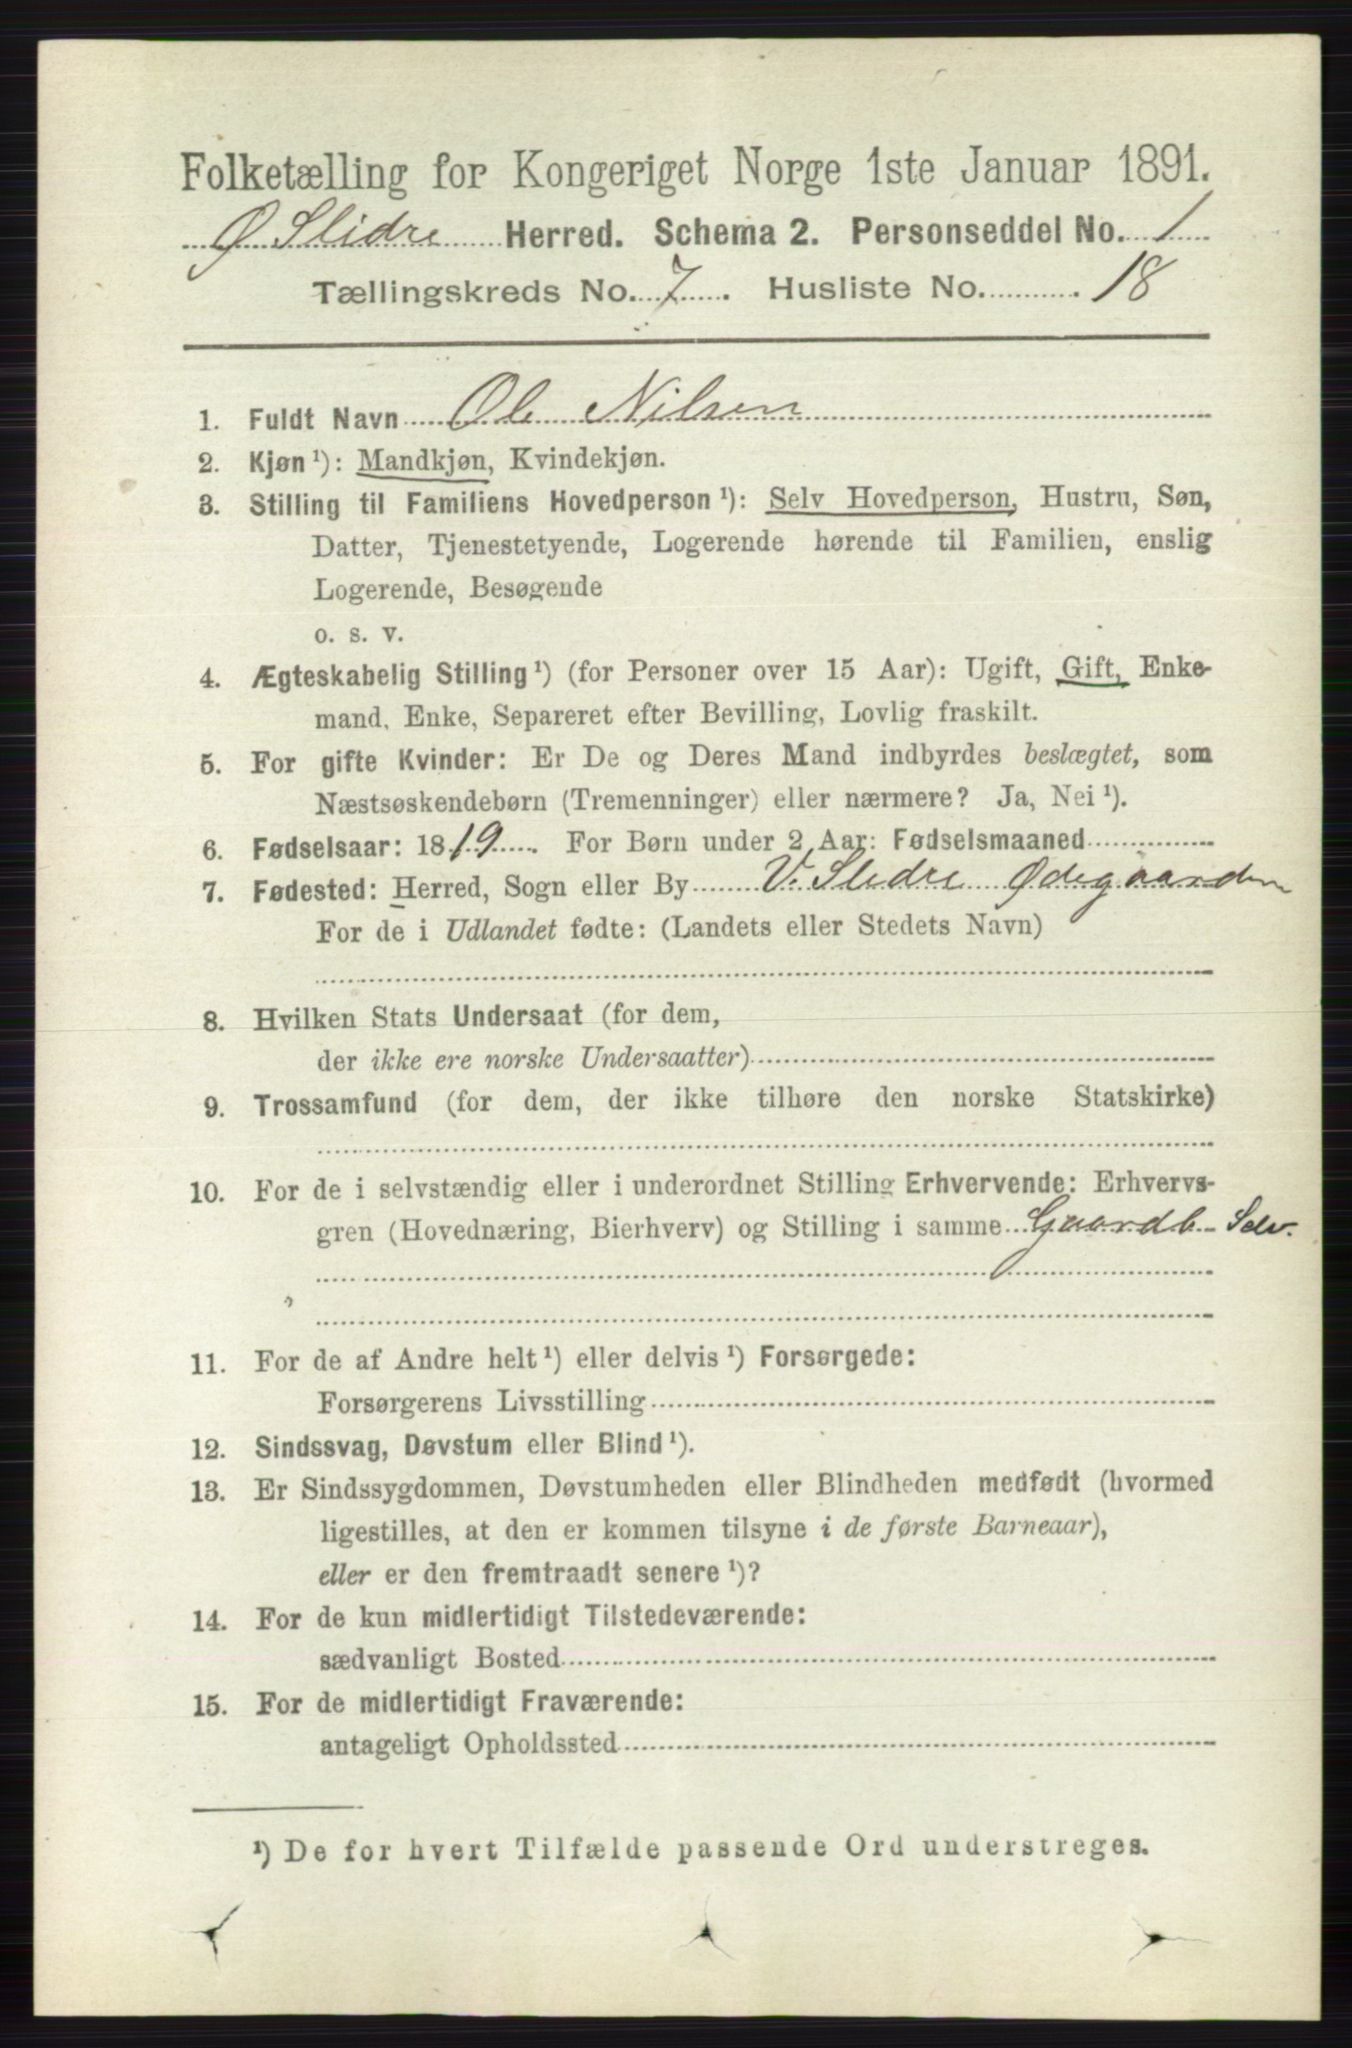 Folketælling for Kongeriget Norge 1ste Januar 1891.
Ø Slidre Herred. Schema 2. Personseddel No. 1
Tællingskreds No. 7. Husliste No. 18
1. Fuldt Navn Ole Nilsen
2. Kjøn ¹): Mandkjøn, Kvindekjøn.
3. Stilling til Familiens Hovedperson ¹): Selv Hovedperson, Hustru, Søn,
Datter, Tjenestetyende, Logerende hørende til Familien, enslig
Logerende, Besøgende
o. s. v.
4. Ægteskabelig Stilling ¹) (for Personer over 15 Aar): Ugift, Gift, Enke-
mand, Enke, Separeret efter Bevilling, Lovlig fraskilt.
5. For gifte Kvinder: Er De og Deres Mand indbyrdes beslægtet, som
Næstsøskendebørn (Tremenninger) eller nærmere? Ja, Nei ¹).
6. Fødselsaar: 1819. For Børn under 2 Aar: Fødselsmaaned
7. Fødested: Herred, Sogn eller By V. Slidre Ødegaarden
For de i Udlandet fødte: (Landets eller Stedets Navn)
8. Hvilken Stats Undersaat (for dem,
der ikke ere norske Undersaatter)
9. Trossamfund (for dem, der ikke tilhøre den norske Statskirke)
10. For de i selvstændig eller i underordnet Stilling Erhvervende: Erhvervs-
gren (Hovednæring, Bierhverv) og Stilling i samme Gaardb. Selv.
11. For de af Andre helt ¹) eller delvis ¹) Forsørgede:
Forsørgerens Livsstilling
12. Sindssvag, Døvstum eller Blind ¹).
13. Er Sindssygdommen, Døvstumheden eller Blindheden medfødt (hvormed
ligestilles, at den er kommen tilsyne i de første Barneaar),
eller er den fremtraadt senere ¹)?
14. For de kun midlertidigt Tilstedeværende:
sædvanligt Bosted
15. For de midlertidigt Fraværende:
antageligt Opholdssted
¹) De for hvert Tilfælde passende Ord understreges.